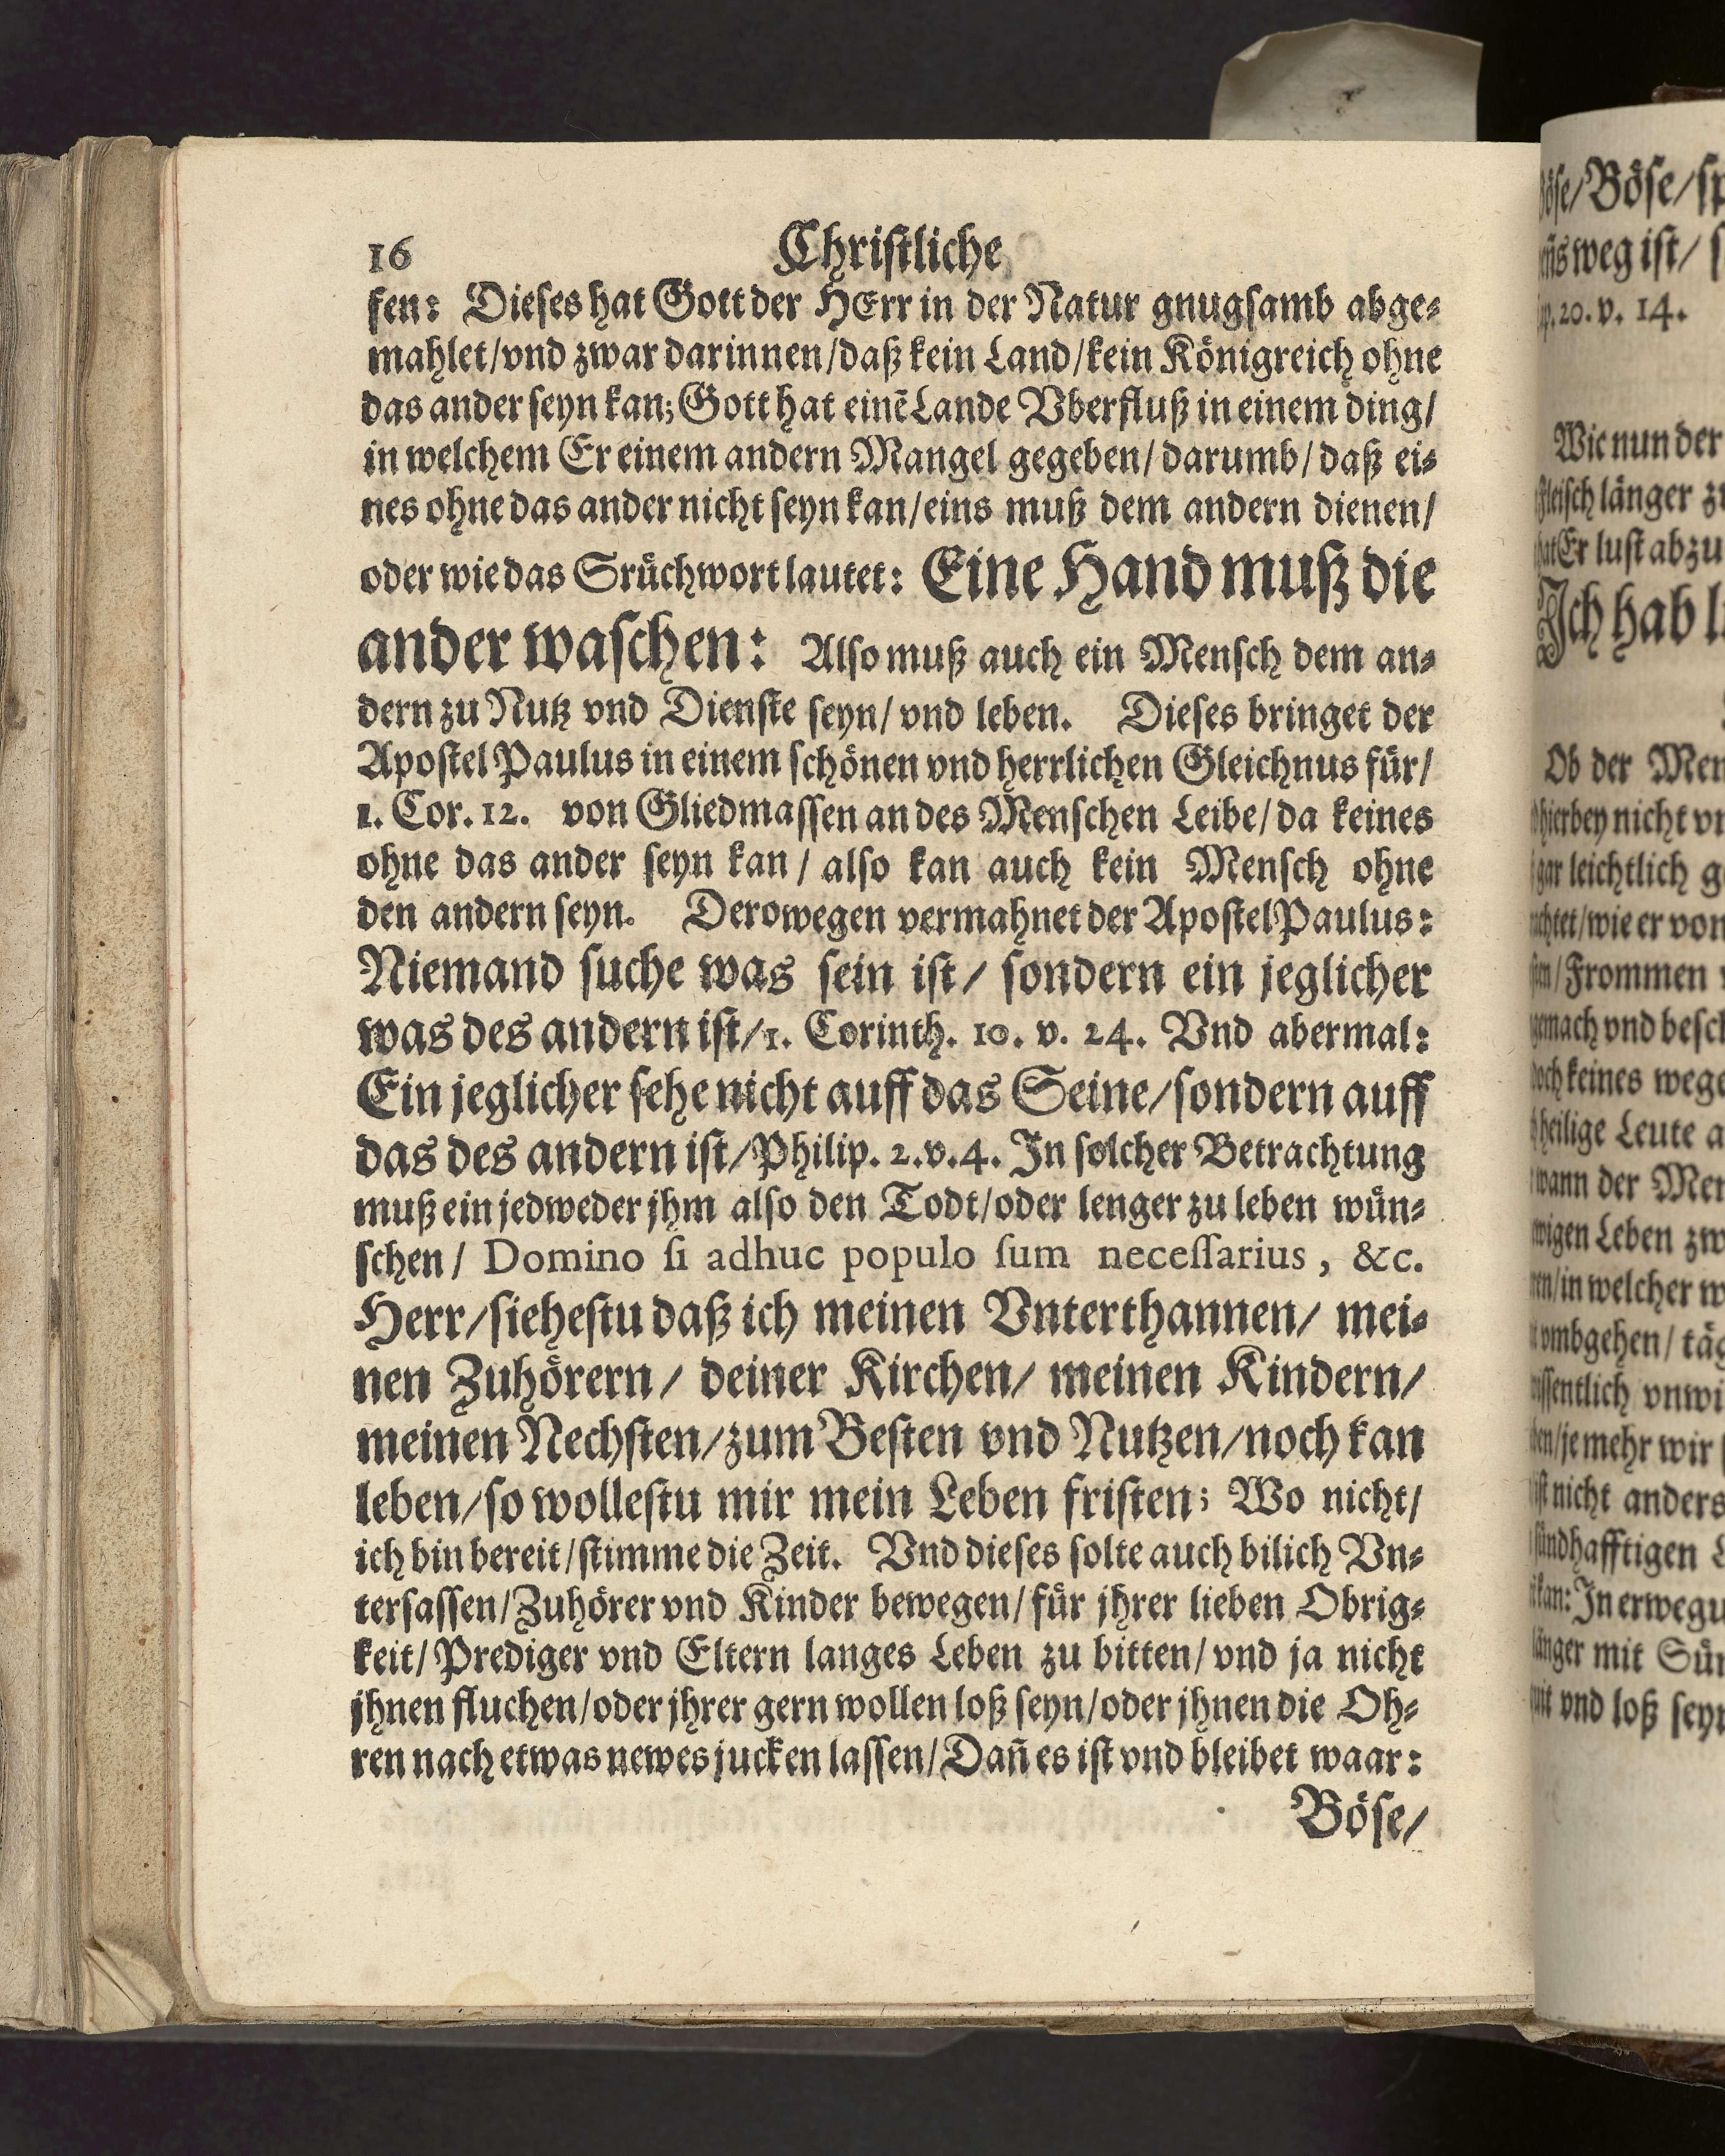 16 Christliche
sen: Dieses hat Gott der HErr in der Natur gnugsamb abge-
mahlet/vnd zwar darinnen/daß kein Land/kein Königreich ohne
das ander seyn kan; Gott hat einẽ Lande Vberfluß in einem ding/
in welchem Er einem andern Mangel gegeben/darumb/daß ei-
nes ohne das ander nicht seyn kan/eins muß dem andern dienen/
oder wie das Srüchwort lautet: Eine Hand muß die
ander waschen: Also muß auch ein Mensch dem an-
dern zu Nutz vnd Dienste seyn/vnd leben. Dieses bringet der
Apostel Paulus in einem schönen vnd herrlichen Gleichnus für/
1. Cor. 12. von Gliedmassen an des Menschen Leibe/da keines
ohne das ander seyn kan/also kan auch kein Mensch ohne
den andern seyn. Derowegen vermahnet der Apostel Paulus:
Niemand suche was sein ist/sondern ein jeglicher
was des andern ist/1. Corinth. 10. v. 24. Vnd abermal:
Ein jeglicher sehe nicht auff das Seine/sondern auff
das des andern ist/Philip. 2.v.4. In solcher Betrachtung
muß ein jedweder jhm also den Todt/oder lenger zu leben wün-
schen/ Domino si adhuc populo sum necessarius, &c.
Herr/siehestu daß ich meinen Vnterthannen/ mei-
nen Zuhörern/ deiner Kirchen/ meinen Kindern/
meinen Nechsten/zum Besten vnd Nutzen/noch kan
leben/so wollestu mir mein Leben fristen; Wo nicht/
ich bin bereit/stimme die Zeit. Vnd dieses solte auch bilich Vn-
tersassen/Zuhörer vnd Kinder bewegen/für jhrer lieben Obrig-
keit/Prediger vnd Eltern langes Leben zu bitten/vnd ja nicht
jhnen fluchen/oder jhrer gern wollen loß seyn/oder jhnen die Oh-
ren nach etwas newes jucken lassen/Dañ es ist vnd bleibet waar:
Böse/
Böse/
weg ist/
20. v. 14.
Wie nun der
länger
Er lust abzu
Ich hab
Ob der
nicht
leichtlich
wie er von
Frommen
vnd
keines
heilige Leute
wann der
Leben
in welcher
vmbgehen/
je mehr wir
nicht anders
kan: In
mit
vnd loß